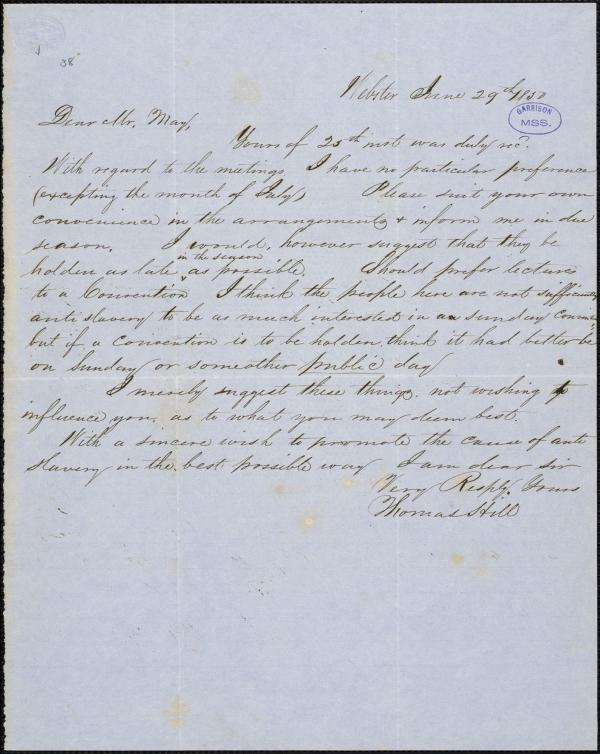 38
Webster June 29th 1850
GARRISON
MSS.
Dear Mr. May,
Yours of 25th inst was duly rec.
With regard to the meetings, I have no particular preference
(excepting the month of July) Please suit your own
convenience in the arrangements & inform me in due
season. I would, however suggest that they be
holden as late in the season as possible. Should prefer lectures
to a Convention I think the people here are not sufficiently
anti slavery to be as much interested in a sunday
but if a Convention is to be holden, think it had better be
on Sunday or someother public day
I merely suggest these things, not wishing to
influence you, as to what you may deem best.
With a sincere wish to promote the cause of anti
slavery in the best possible way I am dear sir
Very Resply. Yours
Thomas Hill